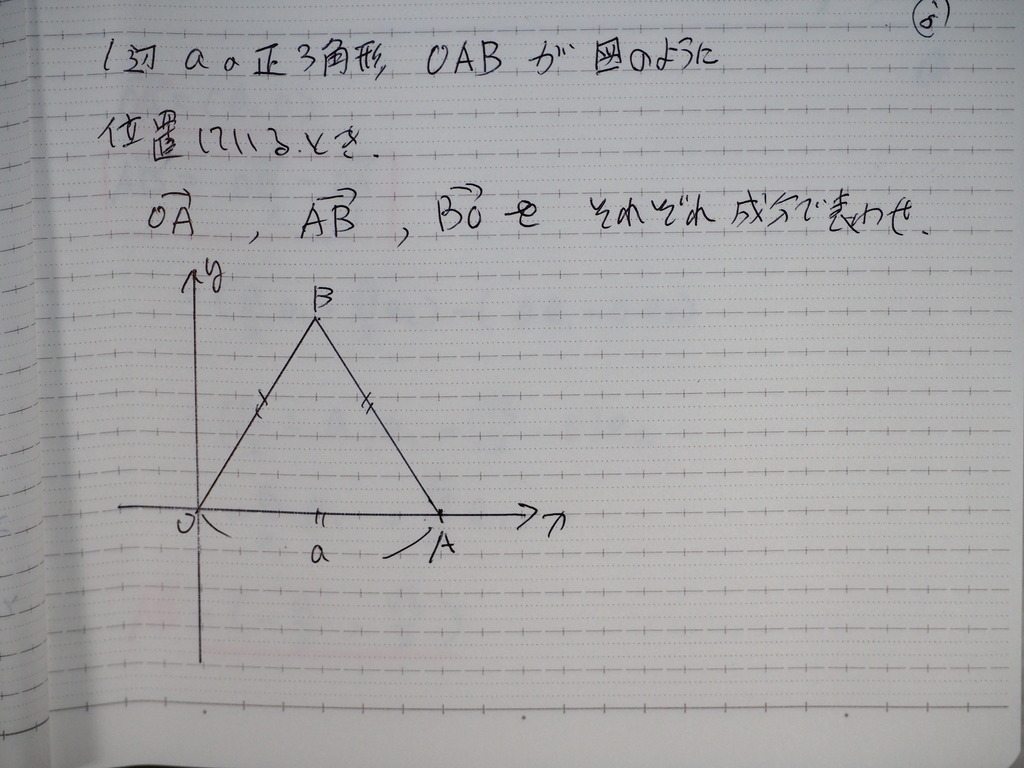 1辺 aの正3角形 OAB が 図のように
位置しているとき.
OA→ , AB→ , BO→ を それぞれ 成分で表わせ.
y
B
O
a
A
x